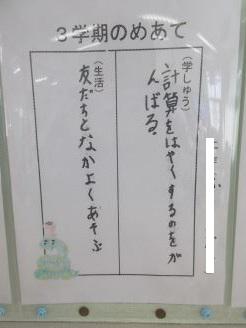 3学期のめあて
（学しゅう）
計算をはやくするのをが
んばる。
（生活）
友だちとなかよくあそぶ